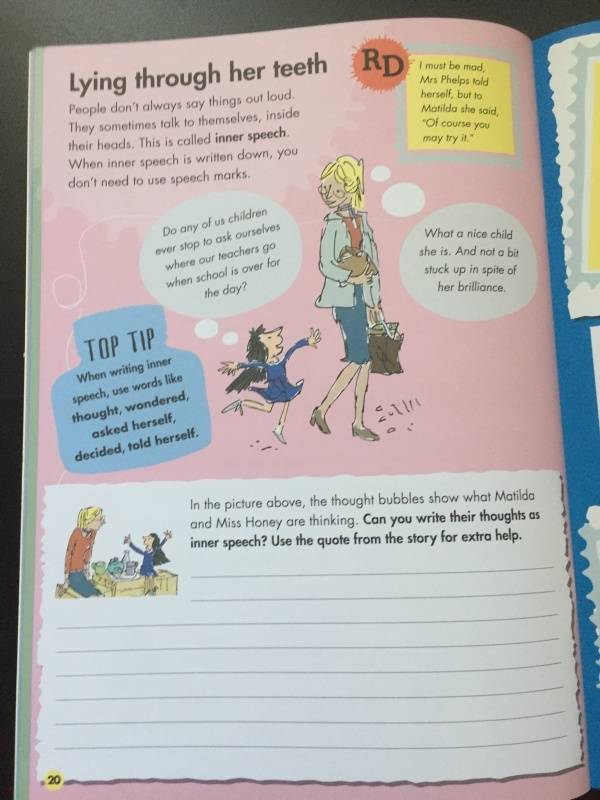 Lying through her teeth
People don't always say things out loud.
They sometimes talk to themselves, inside
their heads. This is called inner speech.
When inner speech is written down, you
don't need to use speech marks.
RD
I must be mad,
Mrs Phelps told
herself, but to
Matilda she said,
"Of course you
may try it."
Do any of us children
ever stop to ask ourselves
where our teachers go
when school is over for
the day?
What a nice child
she is. And not a bit
stuck up in spite of
her brilliance.
TOP TIP
When writing inner
speech, use words like
thought, wondered,
asked herself,
decided, told herself.
In the picture above, the thought bubbles show what Matilda
and Miss Honey are thinking. Can you write their thoughts as
inner speech? Use the quote from the story for extra help.
20